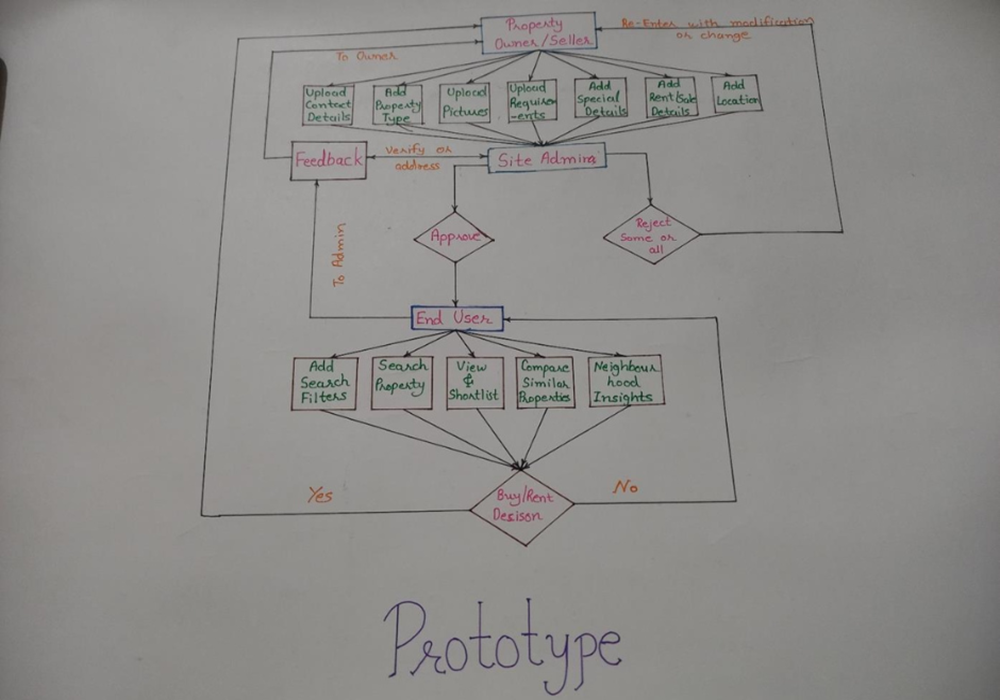 Property
Owner/Seller
Re-Enter with modification
or change
To Owner
Upload
Contact
Details
Add
Property
Type
Upload
Pictures
Upload
Requirem
-ents
Add
Special
Details
Add
Rent/Sale
Details
Add
Location
Feedback
Verify or
address
Site Admins
Approve
Reject
Some or
all
To Admin
End User
Add
Search
Filters
Search
Property
View
&
Shortlist
Compare
Similar
Properties
Neighbour
hood
Insights
Yes
Buy/Rent
Desison
No
Prototype